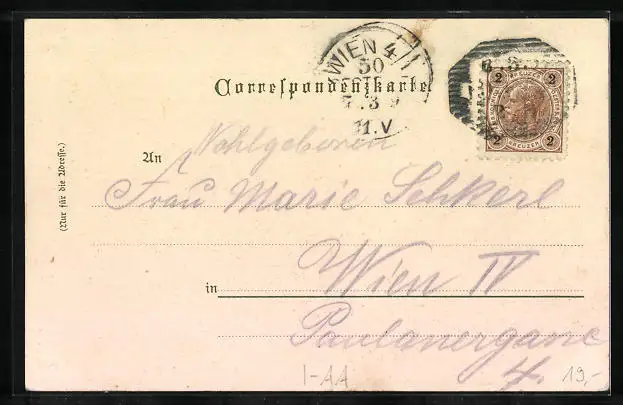 WIEN 4/1
50
11.V
2 2
KREUZER
2 2
Correspondenzkarte
(Nur für die Adresse.)
An Wohlgeboren
Frau Marie Schkerl
in Wien IV
Paulanergasse
4.
I-AA
19,-